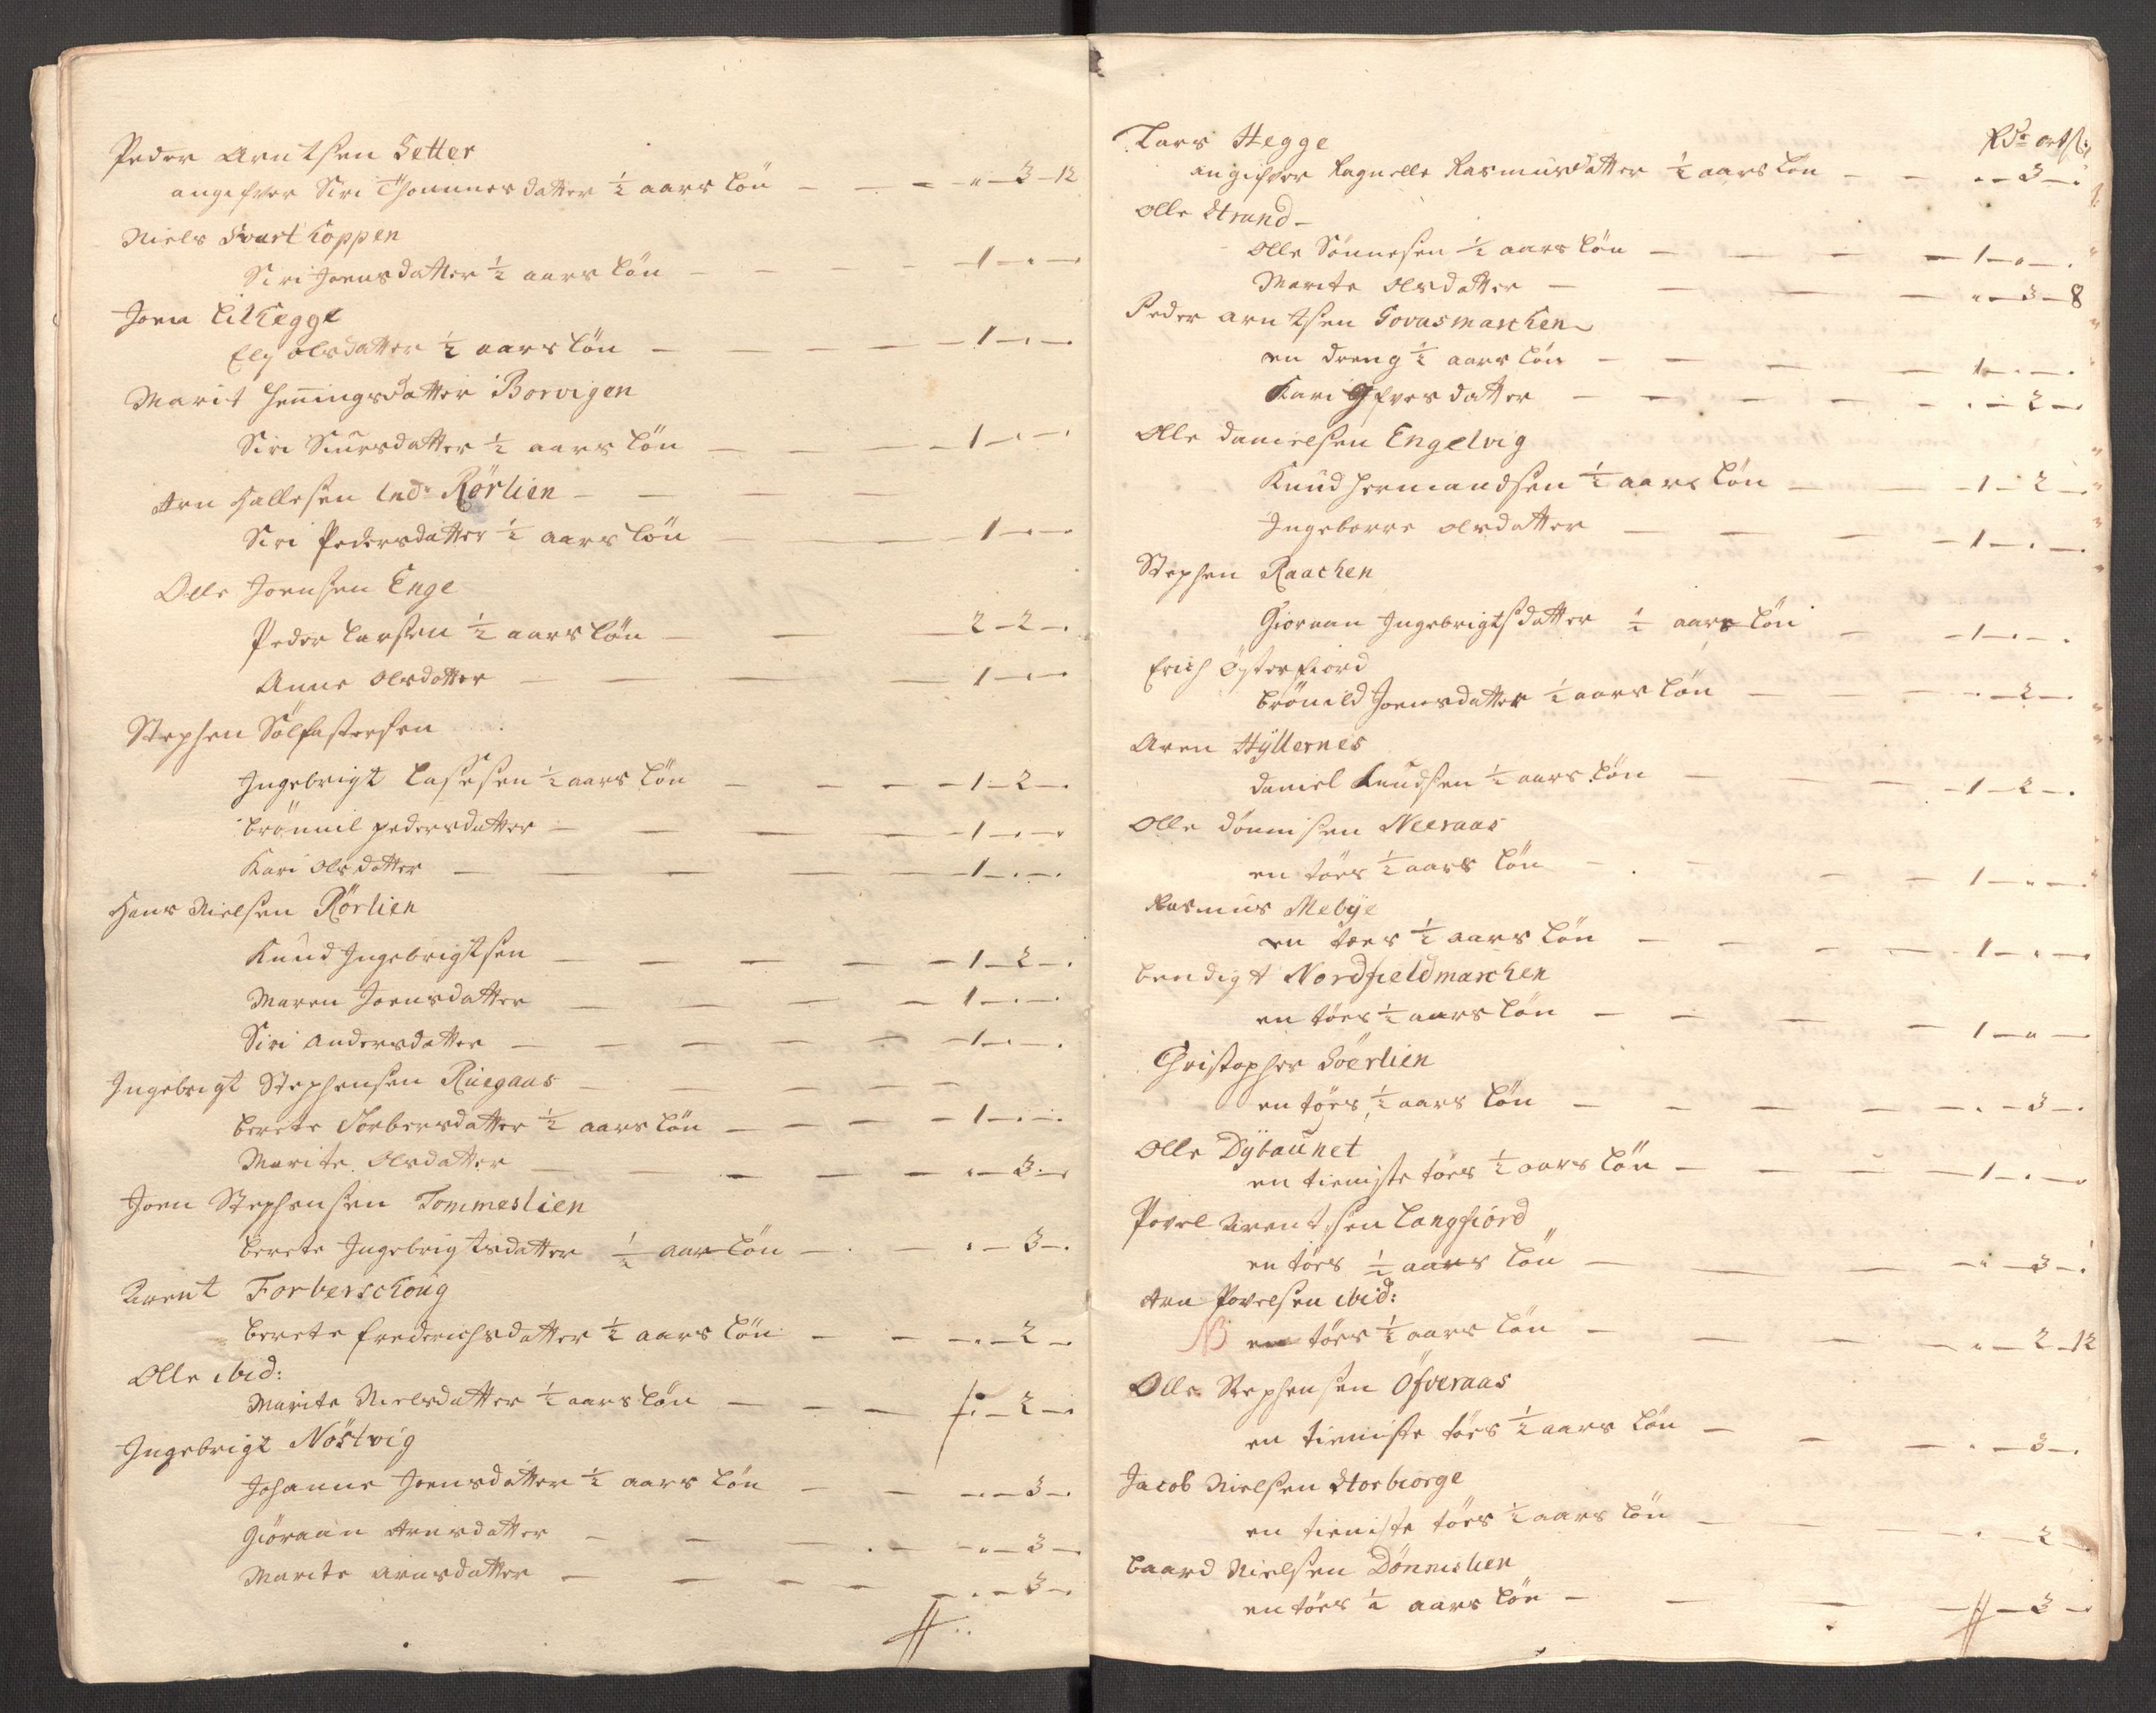 Peder Arntsen Setter
angifver Siri Thommesdatter ½ aars lön — — — „ — 3 — 12
Niels Svartkoppen
Siri Joensdatter ½ aars lön — — — — 1 — „ —
Joen Lilhegge
Ely olsdatter ½ aars lön — — — — 1 — „ —
Marit Henningsdatter Borvigen
Siri Siursdatter ½ aars lön — — — — 1 — „ —
Arn Hallesen Ind: Rörlien — — — —
Siri Pedersdatter ½ aars lön — — — 1 — „ —
Olle Joensen Enge
Peder Larsen ½ aars lön — — — 2 — 2 — „
Anne Olsdatter — — — — 1 — „ —
Stephen Sölfastersen
Ingebrigt Lassesen ½ aars lön — — — — 1 — 2 — „
brönnil pedersdatter — — — — — 1 — „ —
Kari Olsdatter — — — — — — 1 — „ —
Hans Nielsen Rörlien
Knud Ingebrigtsen — — — — — 1 — 2 — „
Maren Joensdatter — — — — — 1 — „ —
Siri Andersdatter — — — — — — 1 — „ —
Ingebrigt Stephensen Ruegaas — — — — —
berete Torbersdatter ½ aars lön — — — — 1 — „ —
Marite Olsdatter — — — — — „ — 3 — „
Joen Stephensen Tommeslien
berete Ingebrigtsdatter ½ aars lön — — — „ — 3 — „
Arent Forberschoug
berete frederichsdatter ½ aars lön — — — „ — 2 — „
Olle ibid:
Marite Nielsdatter ½ aars lön — — — „ — 2 — „
Ingebrigt Nöstvig
Johanne Joensdatter ½ aars lön — — — „ — 3 — „
Giöraan Arnsdatter — — — — — „ — 3 — „
Marite Arnsdatter — — — — — „ — 3 — „
Lars Hegge Rdr ort s:
angifver Ragnelle Rasmusdatter ½ aars lön — — „ — 3 — „
Olle Strand —
Olle Sönnesen ½ aars lön — — — — 1 — „ — „
Marite Olsdatter — — — — „ — 3 — 8
Peder Arntsen Govasmarchen
en dreng ½ aars lön — — — — 1 — „ — „
Kari Ifversdatter — — — — — „ — 2 — „
Olle Danielsen Engelvig
Knud Hermandsen ½ aars lön — — — 1 — 2 — „
Ingeborre olsdatter — — — — 1 — „ — „
Stephen Raachen
Gioraan Ingebrigtsdatter ½ aars lön — — 1 — „ — „
Erich Österfiord
brönild Joensdatter ½ aars lön — — — „ — 2 — „
Aren Hyllernes
Daniel Knudsen ½ aars lön — — — — 1 — 2 — „
Olle Dönnisen Neeraas
en töes ½ aars lön — — — — 1 — „ — „
Rasmus Mebye
en töes ½ aars lön — — — — 1 — „ — „
bendigt Nordfieldmarchen
en töes ½ aars lön — — — — 1 — „ — „
Christopher Söerlien
en töes ½ aars lön — — — — — „ — 3 — „
Olle Dybaunet
en tieniste töes ½ aars lön — — — — 1 — „ — „
Povel Arentsen Langfiord
en töes ½ aars lön — — — — „ — 3 — „
Arn Povelsen ibid:
NB en töes ½ aars lön — — — — „ — 2 — 12
Olle Stephensen Öfveraas
en tieniste töes ½ aars lön — — — „ — 3 — „
Jacob Nielsen Storbiorge
en tieniste töes ½ aars lön — — — „ — 2 — „
baard Nielsen Dönnislien
en töes ½ aars lön — — — — „ — 3 — „